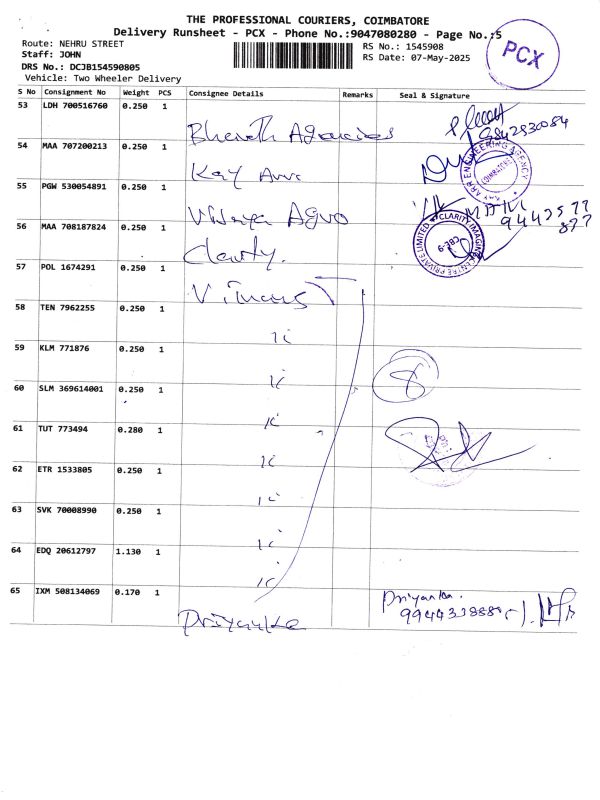 THE PROFESSIONAL COURIERS, COIMBATORE
Delivery Runsheet - PCX - Phone No.:9047080280 - Page No.:5
Route: NEHRU STREET
RS No.: 1545908
Staff: JOHN
RS Date: 07-May-2025
DRS No.: DCJB154590805
Vehicle: Two Wheeler Delivery
PCX
S No Consignment No Weight PCS Consignee Details Remarks Seal & Signature
53 LDH 700516760 0.250 1
Bharath Agencies
9842830084
54 MAA 707200213 0.250 1
Kay Arr
KAY ARR ENGINEERING AGENCY
55 PGW 530054891 0.250 1
Vidhya Agro
MANI
9442577
877
56 MAA 708187824 0.250 1
Clarity.
CLARITY IMAGING CENTRE PRIVATE LIMITED
CBE-9
57 POL 1674291 0.250 1
58 TEN 7962255 0.250 1
59 KLM 771876 0.250 1
60 SLM 369614001 0.250 1
61 TUT 773494 0.280 1
62 ETR 1533805 0.250 1
63 SVK 70008990 0.250 1
64 EDQ 20612797 1.130 1
65 IXM 508134069 0.170 1
Priyanka
Priyanka.